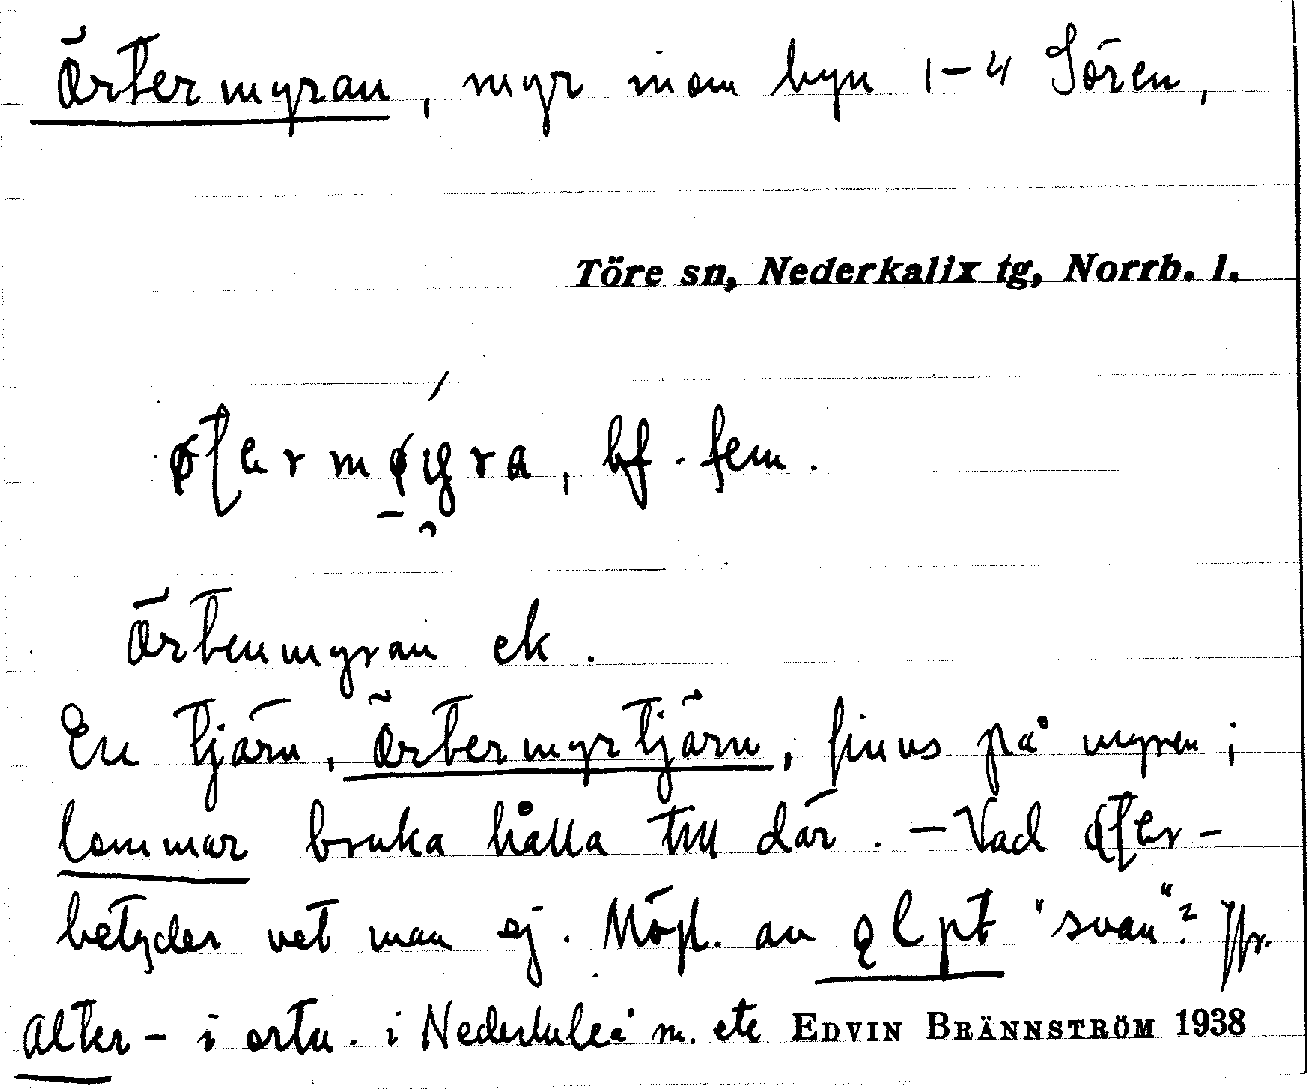 Örtermyran, myr inom byn 1-4 Sören,
Töre sn, Nederkalix tg, Norrb. l.
bf. fem.
Örtenmyran ek.
En tjärn, Örtermyrtjärn, finns på myren;
lommar bruka hålla till där. - Vad
betyder vet man ej. Möjl. av "svan"? Jfr.
Alter- i ortn. i Nederluleå m. etc EDVIN BRÄNNSTRÖM 1938